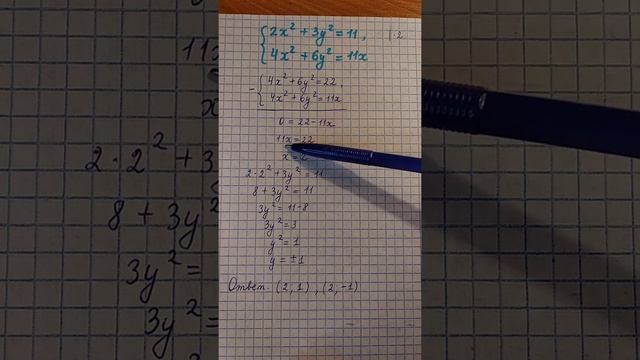 2x² + 3y² = 11, | · 2
4x² + 6y² = 11x
- 4x² + 6y² = 22,
4x² + 6y² = 11x
0 = 22 - 11x
11x = 22
x = 2
2 · 2² + 3y² = 11
8 + 3y² = 11
3y² = 11 - 8
3y² = 3
y² = 1
y = ±1
Ответ: (2, 1), (2, -1)